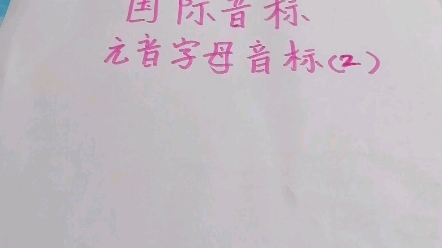 国际音标
元音字母音标(2)